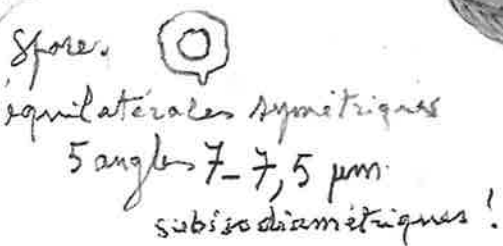 Spore.
équilatérales symétriques
5 angles 7-7,5 µm.
subisodiamétriques !